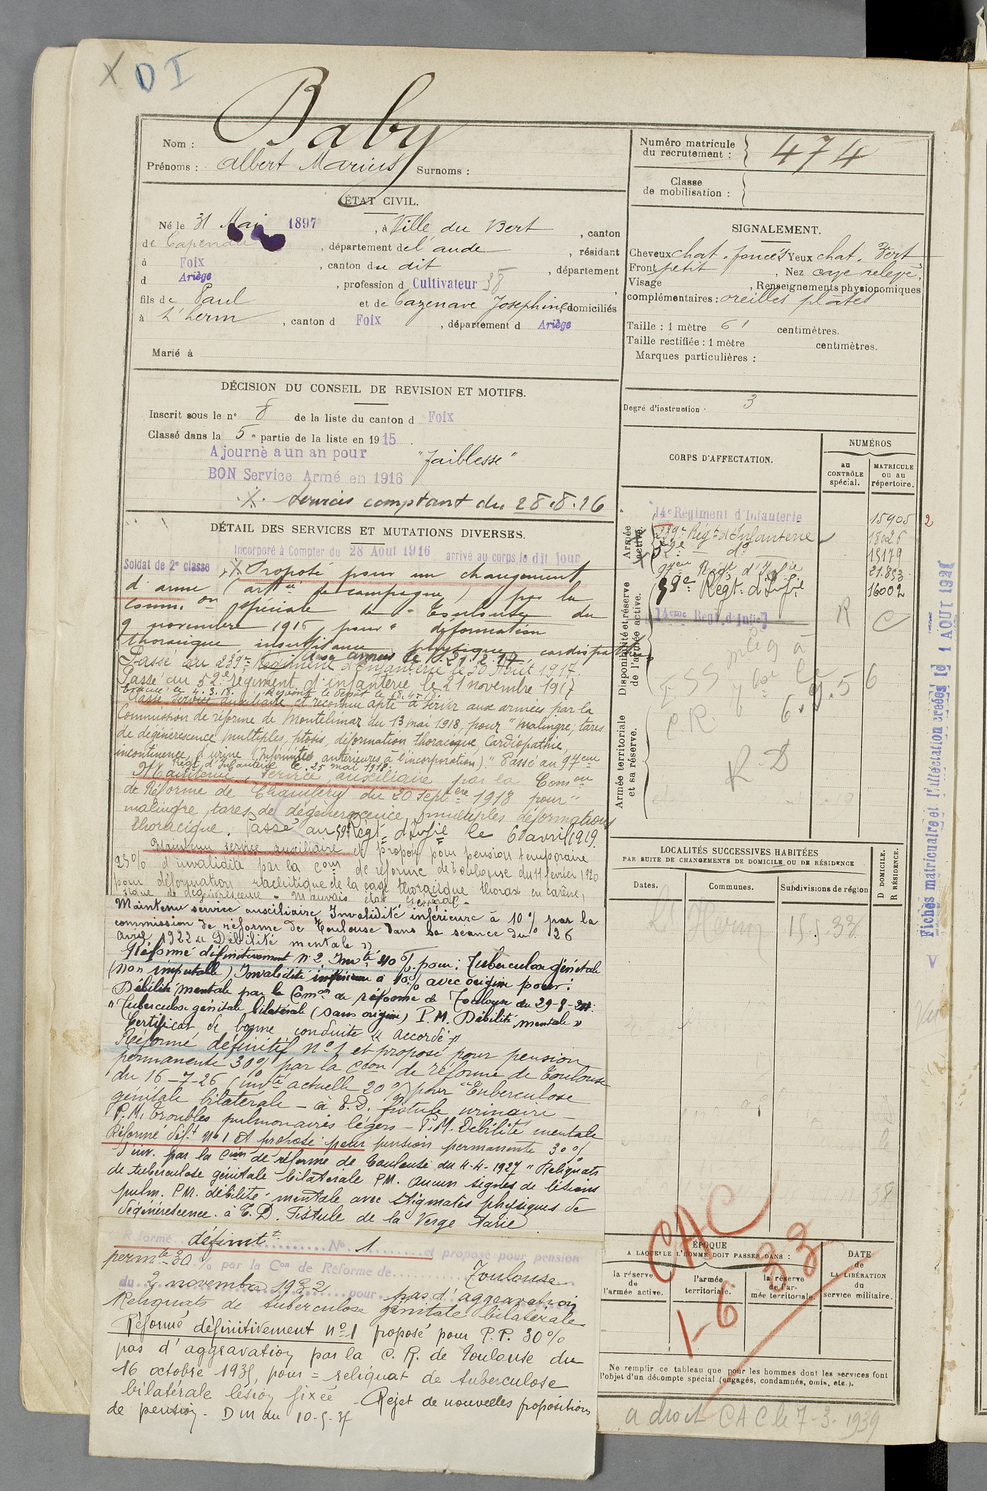 X D I
Nom : Baby
Prénoms : Albert Marius Surnoms :
ÉTAT CIVIL.
Né le 31 Mai 1897, à Ville du Bert, canton
de Capendu, département de l'aude, résidant
à Foix, canton du dit, département
d Ariège, profession d Cultivateur
fils de Paul et de Cazenave Josephine domiciliés
à L'herm, canton d Foix, département d Ariège
Marié à
DÉCISION DU CONSEIL DE REVISION ET MOTIFS.
Inscrit sous le n° 8 de la liste du canton d Foix
Classé dans la 5e partie de la liste en 1915.
Ajourné a un an pour "faiblesse"
BON Service Armé en 1916
X Services comptant du 28.8.16
DÉTAIL DES SERVICES ET MUTATIONS DIVERSES.
Incorporé à Compter du 28 Août 1916 arrivé au corps le dit jour
Soldat de 2e classe X Proposé pour un changement
d'arme (artie de campagne) par la
Comm. on spéciale de Toulouse du
9 novembre 1916 pour " déformation
thoracique insuffisance physique cardiopathie
Passé au 289e Régiment d'infanterie le 30 Août 1917
Passé au 52e régiment d'infanterie le 11 novembre 1917
Evacué le 4.3.18.
Classé Service Auxiliaire et reconnu apte à servir aux armées par la
Commission de réforme de Montelimar du 13 mai 1918, pour "malingre, tares
de dégénérescence multiples, ptosis, déformation thoracique, Cardiopathie,
incontinence d'urine (Infirmités antérieures à l'incorporation)." Passé au 97eme
Régt d'Infanterie le 25 mai 1918.
Maintenu Service auxiliaire par la Comon
de Réforme de Chambéry du 20 Septbre 1918 pour "
malingre, tares de dégénérescence, multiples déformations
thoracique. Passé au 59e Régt d'Infie le 6 avril 1919.
Maintenu service auxiliaire et propon pour pension temporaire
25% d'invalidité par la comon de réforme de Toulouse du 11 février 1920
pour déformation rachitique de la cage thoracique thorax en carène,
signe de dégénérescence - mauvais état général -
Maintenu service auxiliaire Invalidité inférieure à 10% par la
commission de réforme de Toulouse dans sa séance du 26
avril 1922 « Débilité mentale »
Réformé définitivement n°2 Invté 40% pour : Tuberculose génitale
(Non imputable) Invalidité inférieure à 10% avec origine pour :
Débilité mentale par la Comon de réforme de Toulouse du 29-8-24.
"Tuberculose génitale bilatérale (sans origine) P.M. Débilité mentale »
Certificat de bonne conduite « accordé »
Réformé définitif N°1 et proposé pour pension
permanente 30% par la Con de réforme de Toulouse
du 16-7-26 (invté actuelle 20%) pour "Tuberculose
génitale bilatérale - à E.D. fistule urinaire -
P.M. Troubles pulmonaires légers - P.M. Débilité mentale
Réformé déft N°1 et proposé pour pension permanente 30%
d'inv. par la Con de réforme de Toulouse du 4-4-1927 "Reliquats
de tuberculose génitale bilatérale P.M. aucun signes de lésions
pulm. P.M. débilité mentale avec stigmates physiques de
dégénérescence. à E.D. Fistule de la Verge Tarie
Réformé définitt N° 1 et proposé pour pension
permte 30 % par la Con de Réforme de Toulouse
du 2 novembre 1932 pour pas d'aggravation
Reliquats de tuberculose génitale bilatérale
Réformé définitivement n°1 proposé pour P.P. 30%
pas d'aggravation par la C.R. de Toulouse du
16 octobre 1935, pour = reliquat de tuberculose
bilatérale lésion fixée - Rejet de nouvelles propositions
de pension. D M du 10-5-37
Numéro matricule du recrutement : 474
Classe de mobilisation :
SIGNALEMENT.
Cheveux chat. foncés Yeux chat. Vert
Front petit, Nez cave relevé
Visage , Renseignements physionomiques
complémentaires : oreilles plates
Taille : 1 mètre 61 centimètres.
Taille rectifiée : 1 mètre centimètres.
Marques particulières :
Degré d'instruction : 3
CORPS D'AFFECTATION.
NUMÉROS
au CONTRÔLE spécial.
MATRICULE ou au répertoire.
Armée active.
14e Régiment d'Infanterie 15905 2
289e Régt d'Infanterie
52e do 15179
97eme Regt d'Infie 21.853
59e Régt d'Infie 16002
Disponibilité et réserve de l'armée active.
14ème Regt. d'Infie R C
6.9.56
R.D
Armée territoriale
LOCALITÉS SUCCESSIVES HABITÉES
PAR SUITE DE CHANGEMENTS DE DOMICILE OU DE RÉSIDENCE
D DOMICILE.
R RÉSIDENCE.
Dates.
Communes.
Subdivisions de région
ÉPOQUE
A LAQUELLE L'HOMME DOIT PASSER DANS :
la réserve de l'armée active.
l'armée territoriale.
la réserve de l'armée territoriale
DATE DE LA LIBÉRATION du service militaire.
CAC
1-6 33
Ne remplir ce tableau que pour les hommes dont les services font
l'objet d'un décompte spécial (engagés, condamnés, omis, etc.).
a droit CAC le 7-3-1939
Fiches matriculaire et d'affectation créées le 1 AOUT 192